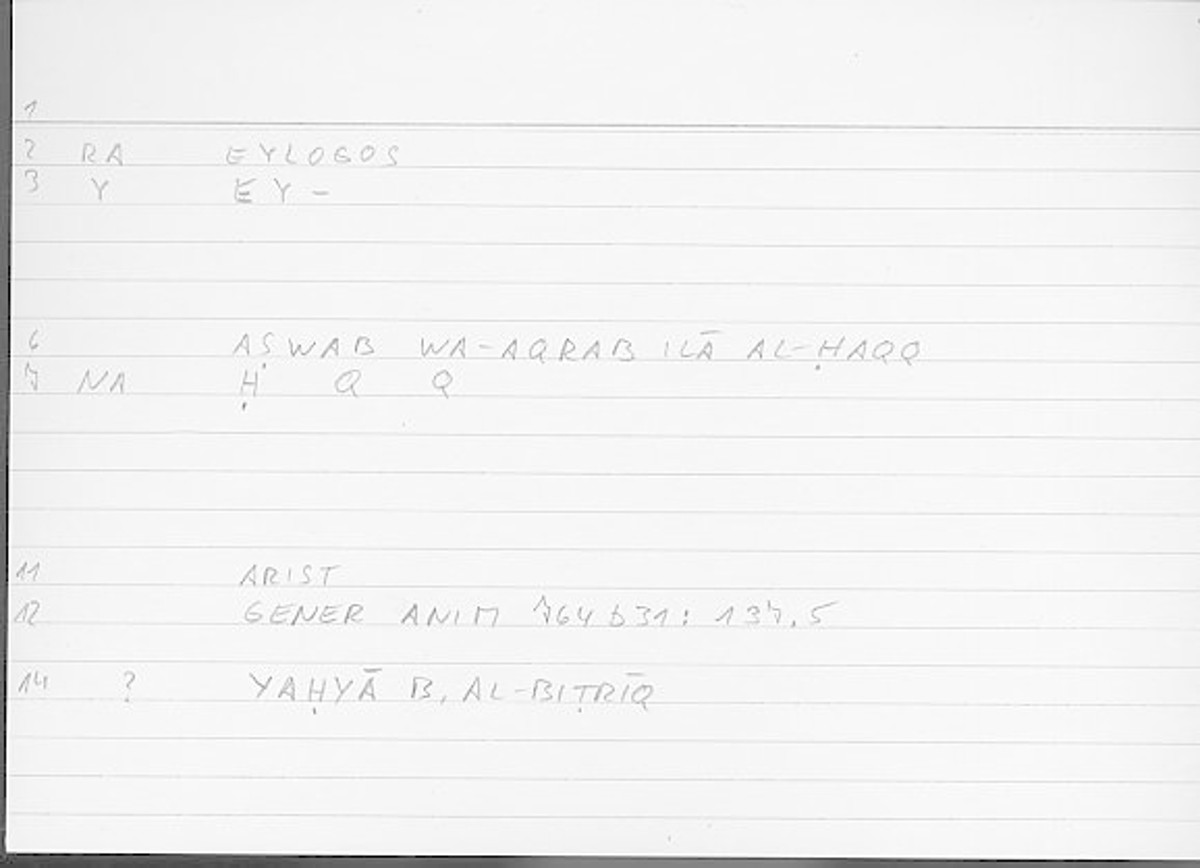 1
2 RA EYLOGOS
3 Y EY-
6 AṢWAB WA-AQRAB ILĀ AL-ḤAQQ
7 NA Ḥ Q Q
11 ARIST
12 GENER ANIM 764b31: 137,5
14 ? YAḤYĀ B. AL-BIṬRĪQ